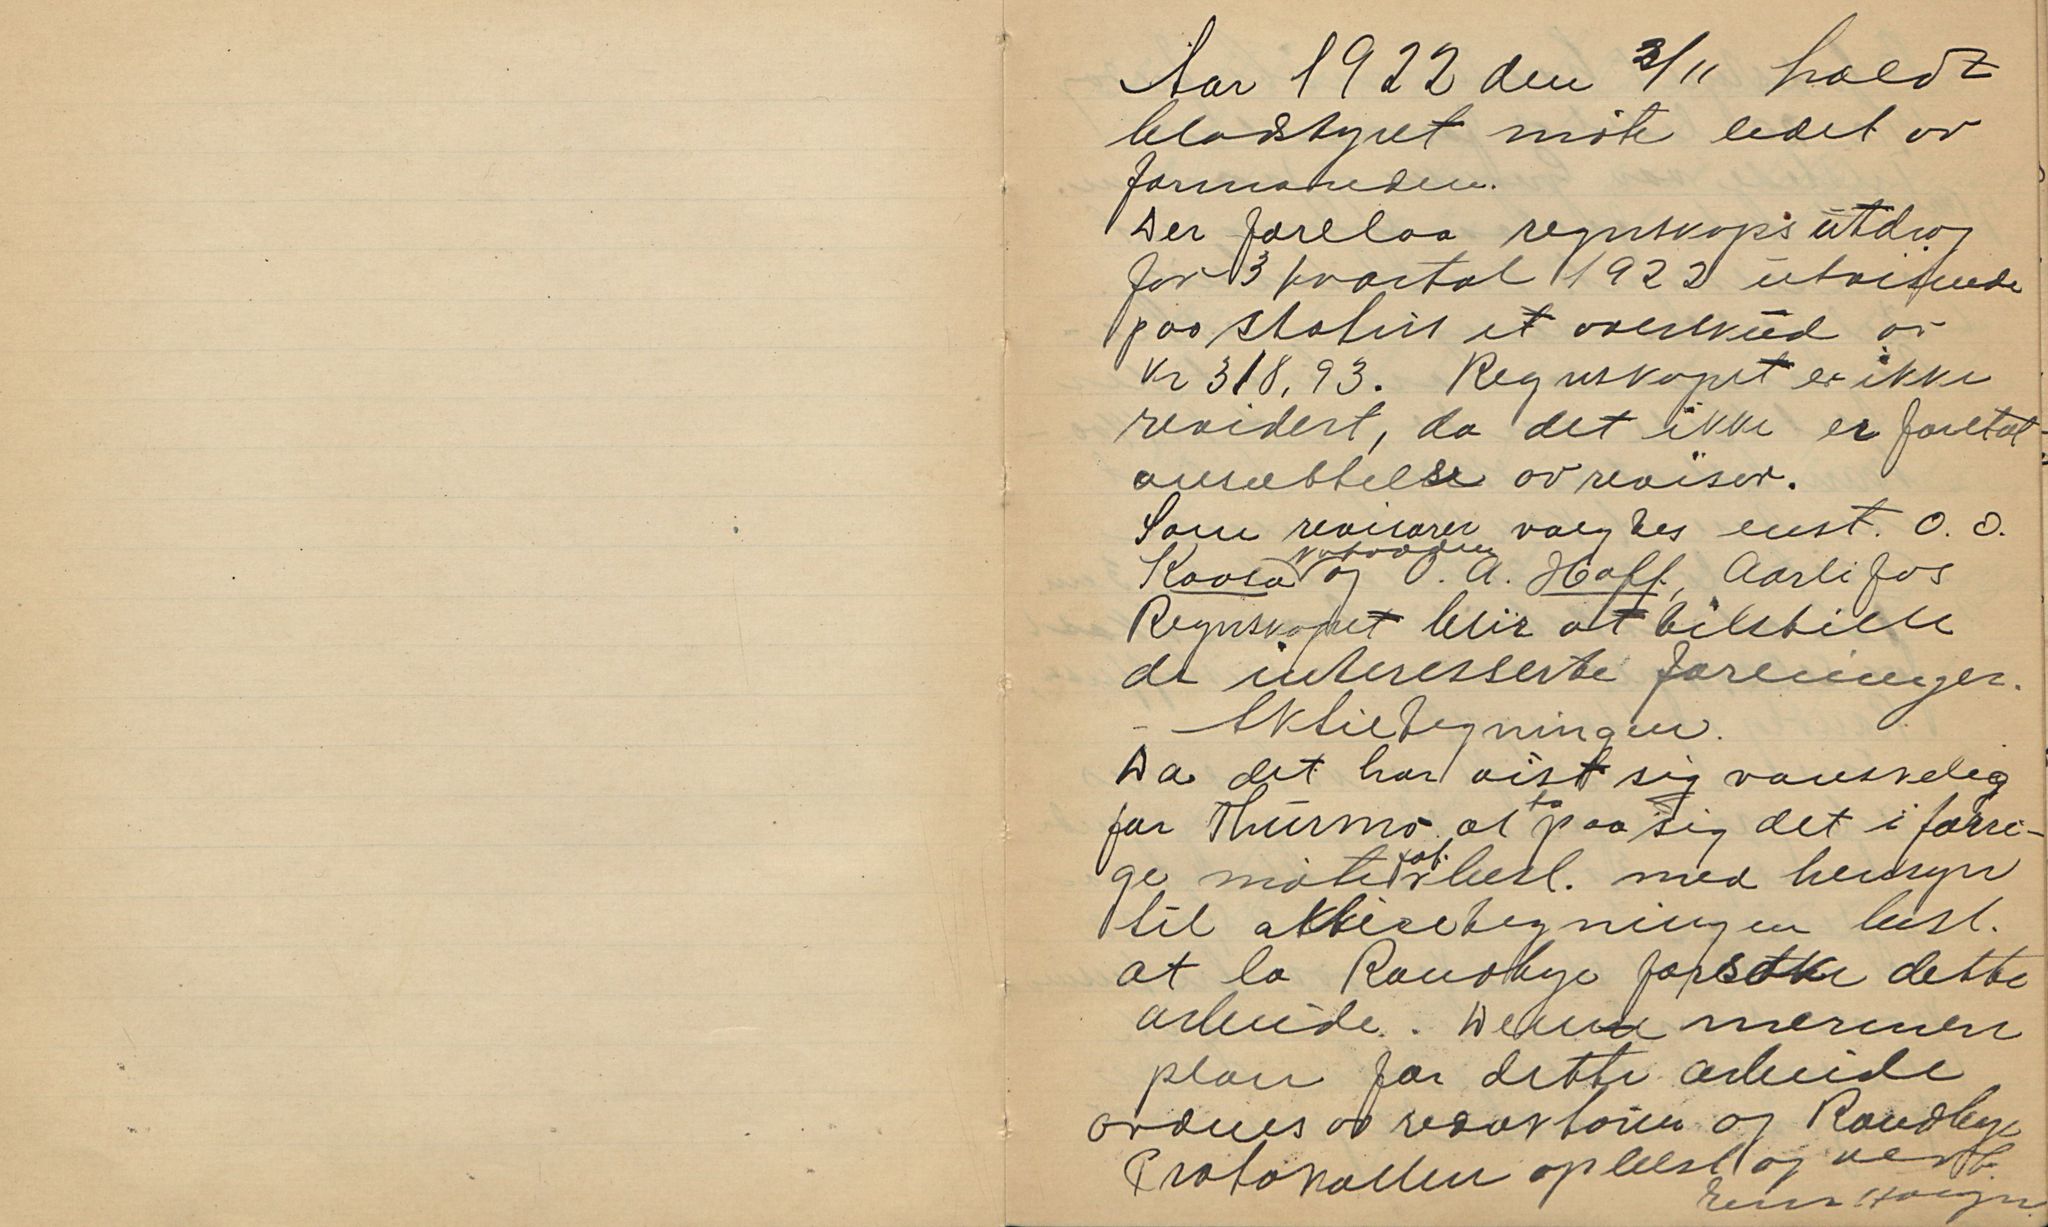 Aar 1922 den 3/11 holdt
bladstyret møte ledet av
formanden.
Der forelaa regnskapsutdrag
for 3 kvartal 1922 utvisende
paa status et overskud av
kr 318,93. Regnskapet er ikke
revidert, da det ikke er foretat
ansættelse av revisor.
Som revisorer valgtes enst. O. O.
Kaasa og O. A. Hoff, Aarlifos
Regnskapet blir at tilstille
de interesserte foreninger.
- Aktietegningen.
Da det har vist sig vanskelig
for Thurmo at ta paa sig det i forri-
ge møte besl. med hensyn
til aktietegningen besl.
at la Randbye forsøke dette
arbeide. Denne nærmere
plan for dette arbeide
ordnes av redaktøren og Randbye
Protokollen oplæst og vedt.